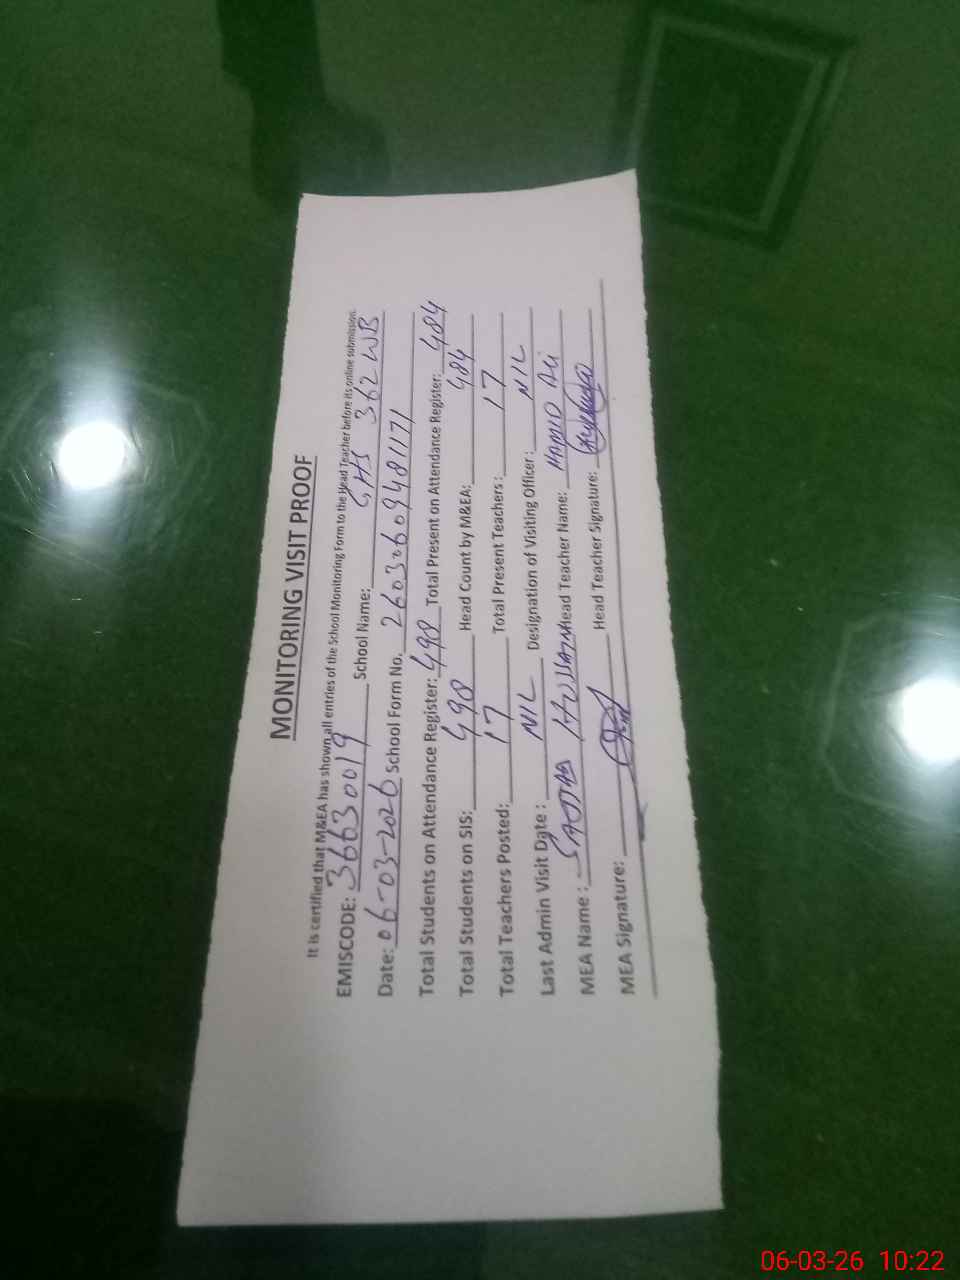 MONITORING VISIT PROOF
It is certified that M&EA has shown all entries of the School Monitoring Form to the Head Teacher before its online submission.
EMISCODE: 36630019 School Name: GHS 362 WB
Date: 06-03-2026 School Form No. 26030609481171
Total Students on Attendance Register: 498 Total Present on Attendance Register: 484
Total Students on SIS: 498 Head Count by M&EA: 484
Total Teachers Posted: 17 Total Present Teachers: 17
Last Admin Visit Date: NIL Designation of Visiting Officer: NIL
MEA Name: HUSSAIN Head Teacher Name: HAMID Ali
MEA Signature: Head Teacher Signature:
06-03-26 10:22